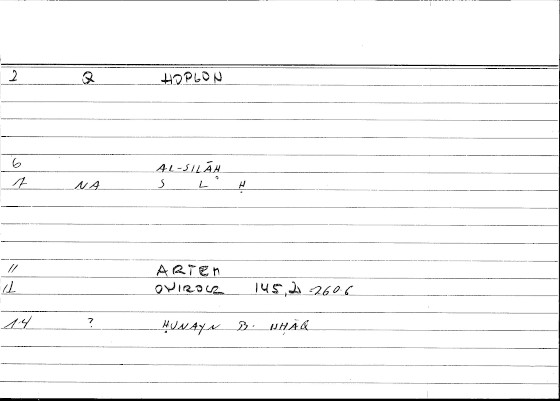 2 Q HOPLON
6 AL-SILĀḤ
7 NA S L Ḥ
11 ARTEM
12 145,2 2606
14 ? ḤUNAYN B. ISḤĀQ